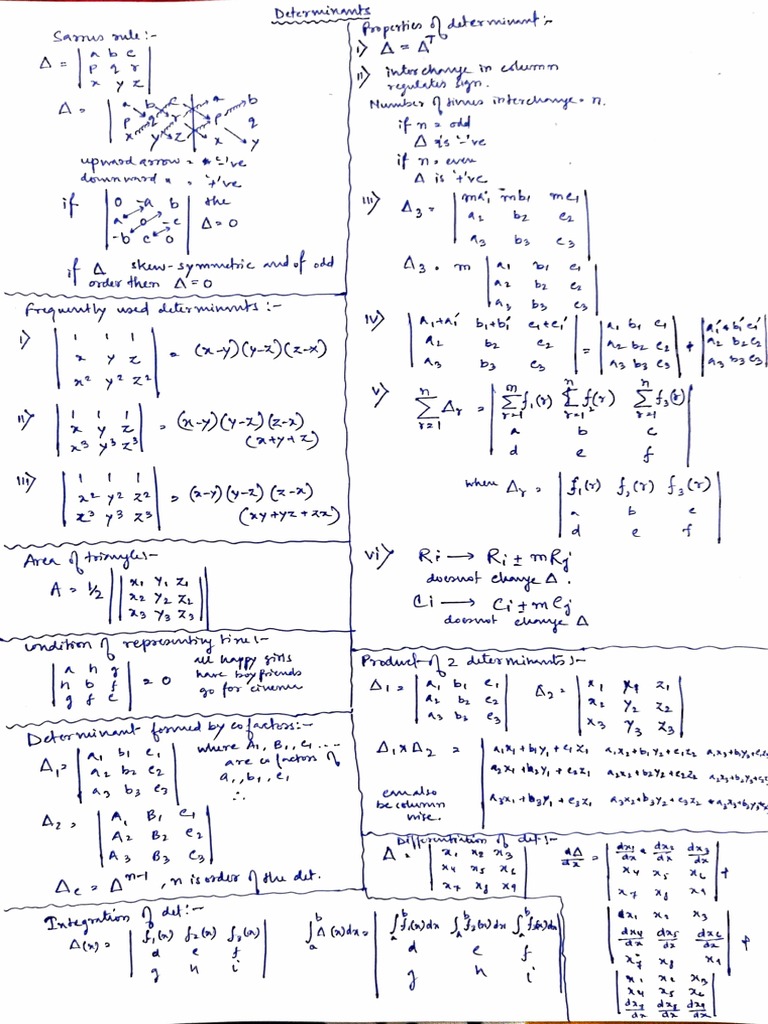 Determinants
Sarrus rule:-
Δ = | a b c |
| p q r |
| x y z |
Δ = | a b c | a b
p q r | p q
x y z | x y
upward arrow = '-'ve
downward " = '+'ve
if | 0 -a b | the
| a 0 -c | Δ=0
| -b c 0 |
if Δ skew-symmetric and of odd
order then Δ=0
Frequently used determinants:-
i) | 1 1 1 |
| x y z | = (x-y)(y-z)(z-x)
| x² y² z² |
ii) | 1 1 1 |
| x y z | = (x-y)(y-z)(z-x)
| x³ y³ z³ | (x+y+z)
iii) | 1 1 1 |
| x² y² z² | = (x-y)(y-z)(z-x)
| x³ y³ z³ | (xy+yz+zx)
Area of triangle:-
A = 1/2 || x₁ y₁ z₁ ||
|| x₂ y₂ z₂ ||
|| x₃ y₃ z₃ ||
condition of representing line:-
| a h g | all happy girls
| h b f | = 0 have boyfriends
| g f c | go for cinema
Determinant formed by cofactors:-
Δ₁ = | a₁ b₁ c₁ | where A₁, B₁, C₁ ....
| a₂ b₂ c₂ | are cofactors of
| a₃ b₃ c₃ | a₁, b₁, c₁
∴
Δ₂ = | A₁ B₁ C₁ |
| A₂ B₂ C₂ |
| A₃ B₃ C₃ |
Δc = Δⁿ⁻¹, n is order of the det.
Integration of det:-
Δ(x) = | f₁(x) f₂(x) f₃(x) |
| d e f |
| g h i |
∫ₐᵇ Δ(x)dx = | ∫ₐᵇ f₁(x)dx ∫ₐᵇ f₂(x)dx ∫ₐᵇ f₃(x)dx |
| d e f |
| g h i |
Properties of determinant:-
i) Δ = Δᵀ
ii) interchange in column
regulates sign.
Number of times interchange = n.
if n = odd
Δ is '-'ve
if n = even
Δ is '+'ve
iii) Δ₃ = | ma₁ mb₁ mc₁ |
| a₂ b₂ c₂ |
| a₃ b₃ c₃ |
Δ₃ = m | a₁ b₁ c₁ |
| a₂ b₂ c₂ |
| a₃ b₃ c₃ |
iv) | a₁+a₁' b₁+b₁' c₁+c₁' | = | a₁ b₁ c₁ | + | a₁' b₁' c₁' |
| a₂ b₂ c₂ | | a₂ b₂ c₂ | | a₂ b₂ c₂ |
| a₃ b₃ c₃ | | a₃ b₃ c₃ | | a₃ b₃ c₃ |
v) Σⁿᵣ₌₁ Δr = | Σᵐᵣ₌₁ f₁(r) Σⁿᵣ₌₁ f₂(r) Σⁿᵣ₌₁ f₃(r) |
| a b c |
| d e f |
where Δr = | f₁(r) f₂(r) f₃(r) |
| a b c |
| d e f |
vi) Ri → Ri ± mRj
doesnot change Δ.
Ci → Ci ± mCj
doesnot change Δ
Product of 2 determinants:-
Δ₁ = | a₁ b₁ c₁ | Δ₂ = | x₁ y₁ z₁ |
| a₂ b₂ c₂ | | x₂ y₂ z₂ |
| a₃ b₃ c₃ | | x₃ y₃ z₃ |
Δ₁×Δ₂ = | a₁x₁+b₁y₁+c₁z₁ a₁x₂+b₁y₂+c₁z₂ a₁x₃+b₁y₃+c₁z₃
| a₂x₁+b₂y₁+c₂z₁ a₂x₂+b₂y₂+c₂z₂ a₂x₃+b₂y₃+c₂z₃
| a₃x₁+b₃y₁+c₃z₁ a₃x₂+b₃y₂+c₃z₂ a₃x₃+b₃y₃+c₃z₃
can also
be column
wise.
Differentiation of det:-
Δ = | x₁ x₂ x₃ |
| x₄ x₅ x₆ |
| x₇ x₈ x₉ |
dΔ/dx = | dx₁/dx dx₂/dx dx₃/dx |
| x₄ x₅ x₆ | +
| x₇ x₈ x₉ |
| x₁ x₂ x₃ |
| dx₄/dx dx₅/dx dx₆/dx | +
| x₇ x₈ x₉ |
| x₁ x₂ x₃ |
| x₄ x₅ x₆ |
| dx₇/dx dx₈/dx dx₉/dx |